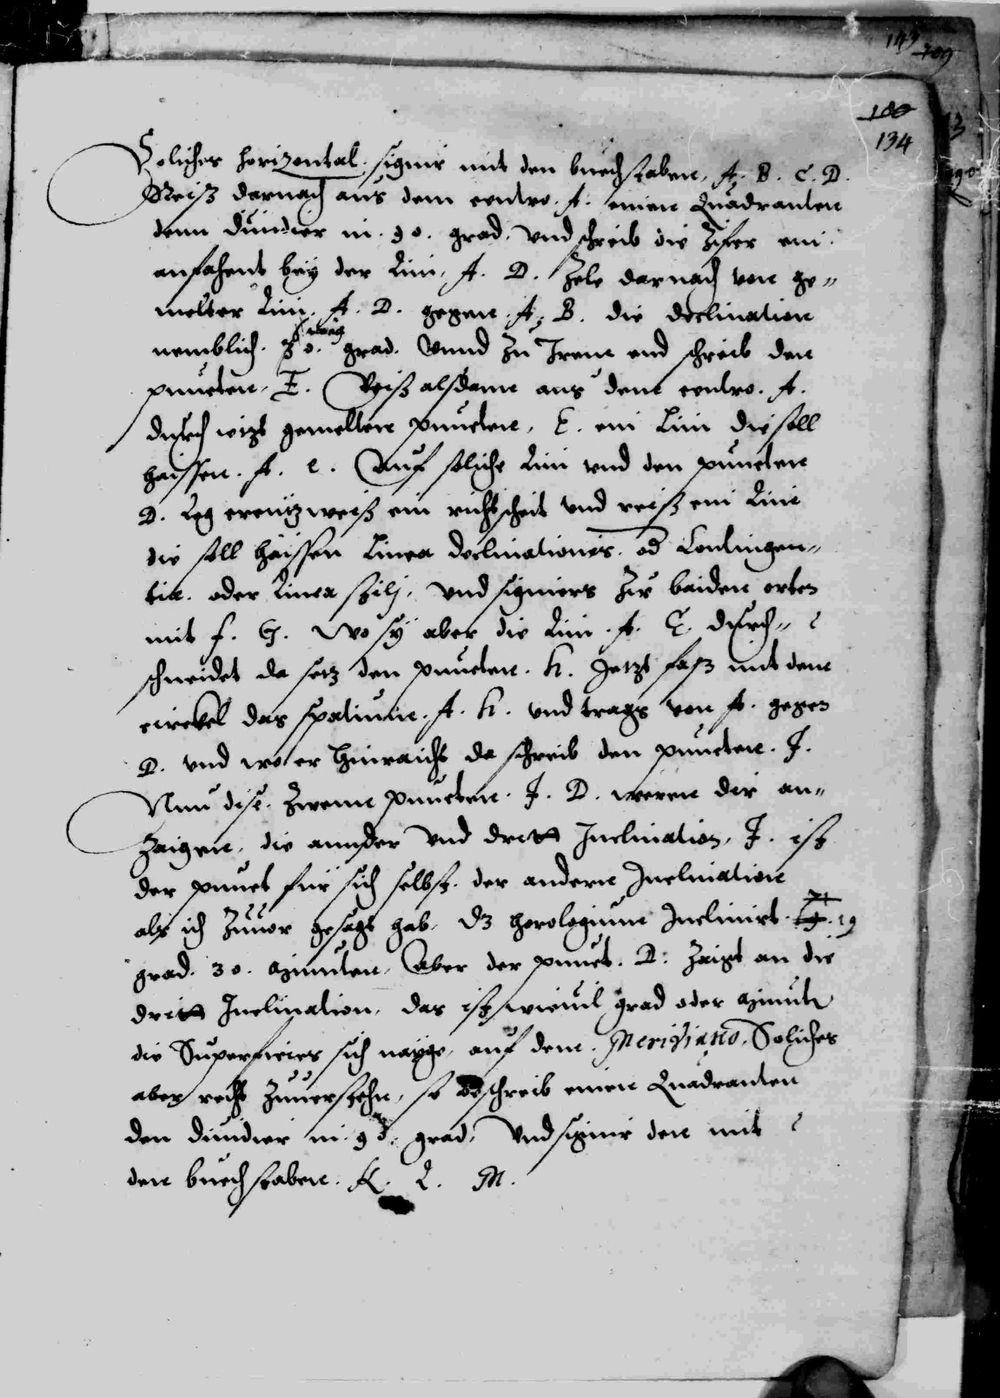 143 709
180
134
Soliches horizontal. signir mit den buechstaben, A. B. C. D.
Reiß darnach aus dem centro. A. einen Quadranten
denn diuidier in. 90. grad. Vnd schreib die Zifer ein.
anfahent bey der Lini, A. D. Zele darnach von ge„
melter Lini. A. D. gegen. A. B. die declination
nemblich. 30. grad. Vnnd zu Irem end schreib den
puncten, E. Reiß alsdann aus dem centro. A.
durch jezt gemelten puncten, E. ein Lini die soll
haissen. A. e. Auf soliche Lini vnd den puncten
D. Leg creutzweiß ein richtscheit vnd reiß ein Lini
die soll haissen Linea declinationis. od Contingen„
tiæ. oder Linea stili, vnd signiers zu baiden orten
mit F. G. Wo sy aber die Lini. A. E. durch„
schneidet da setz den puncten. H. Jetzt faß mit dem
circkel das spatium. A. H. vnd trags von A. gegen
D. vnd wo er hinraicht da schreib den puncten. I.
Nun dise. Zwene puncten. I. D. weren dir an„
Zaigen, die annder vnd dritt Inclination, I. ist
der punct für sich selbst. der andern Inclination
als ich Zuuor gesagt hab. Dz horologium Inclinirt. 19
grad. 30. minuten, Aber der punct. D: Zaigt an die
dritt Inclination, das ist, wieuil grad oder minut
die Superficies sich naige, auf dem. Meridiano, Soliches
aber recht Zuuersteen, so beschreib einen Quadranten
den diuidier in. 90. grad, Vnd signir den mit
den buechstaben. K. L. M.